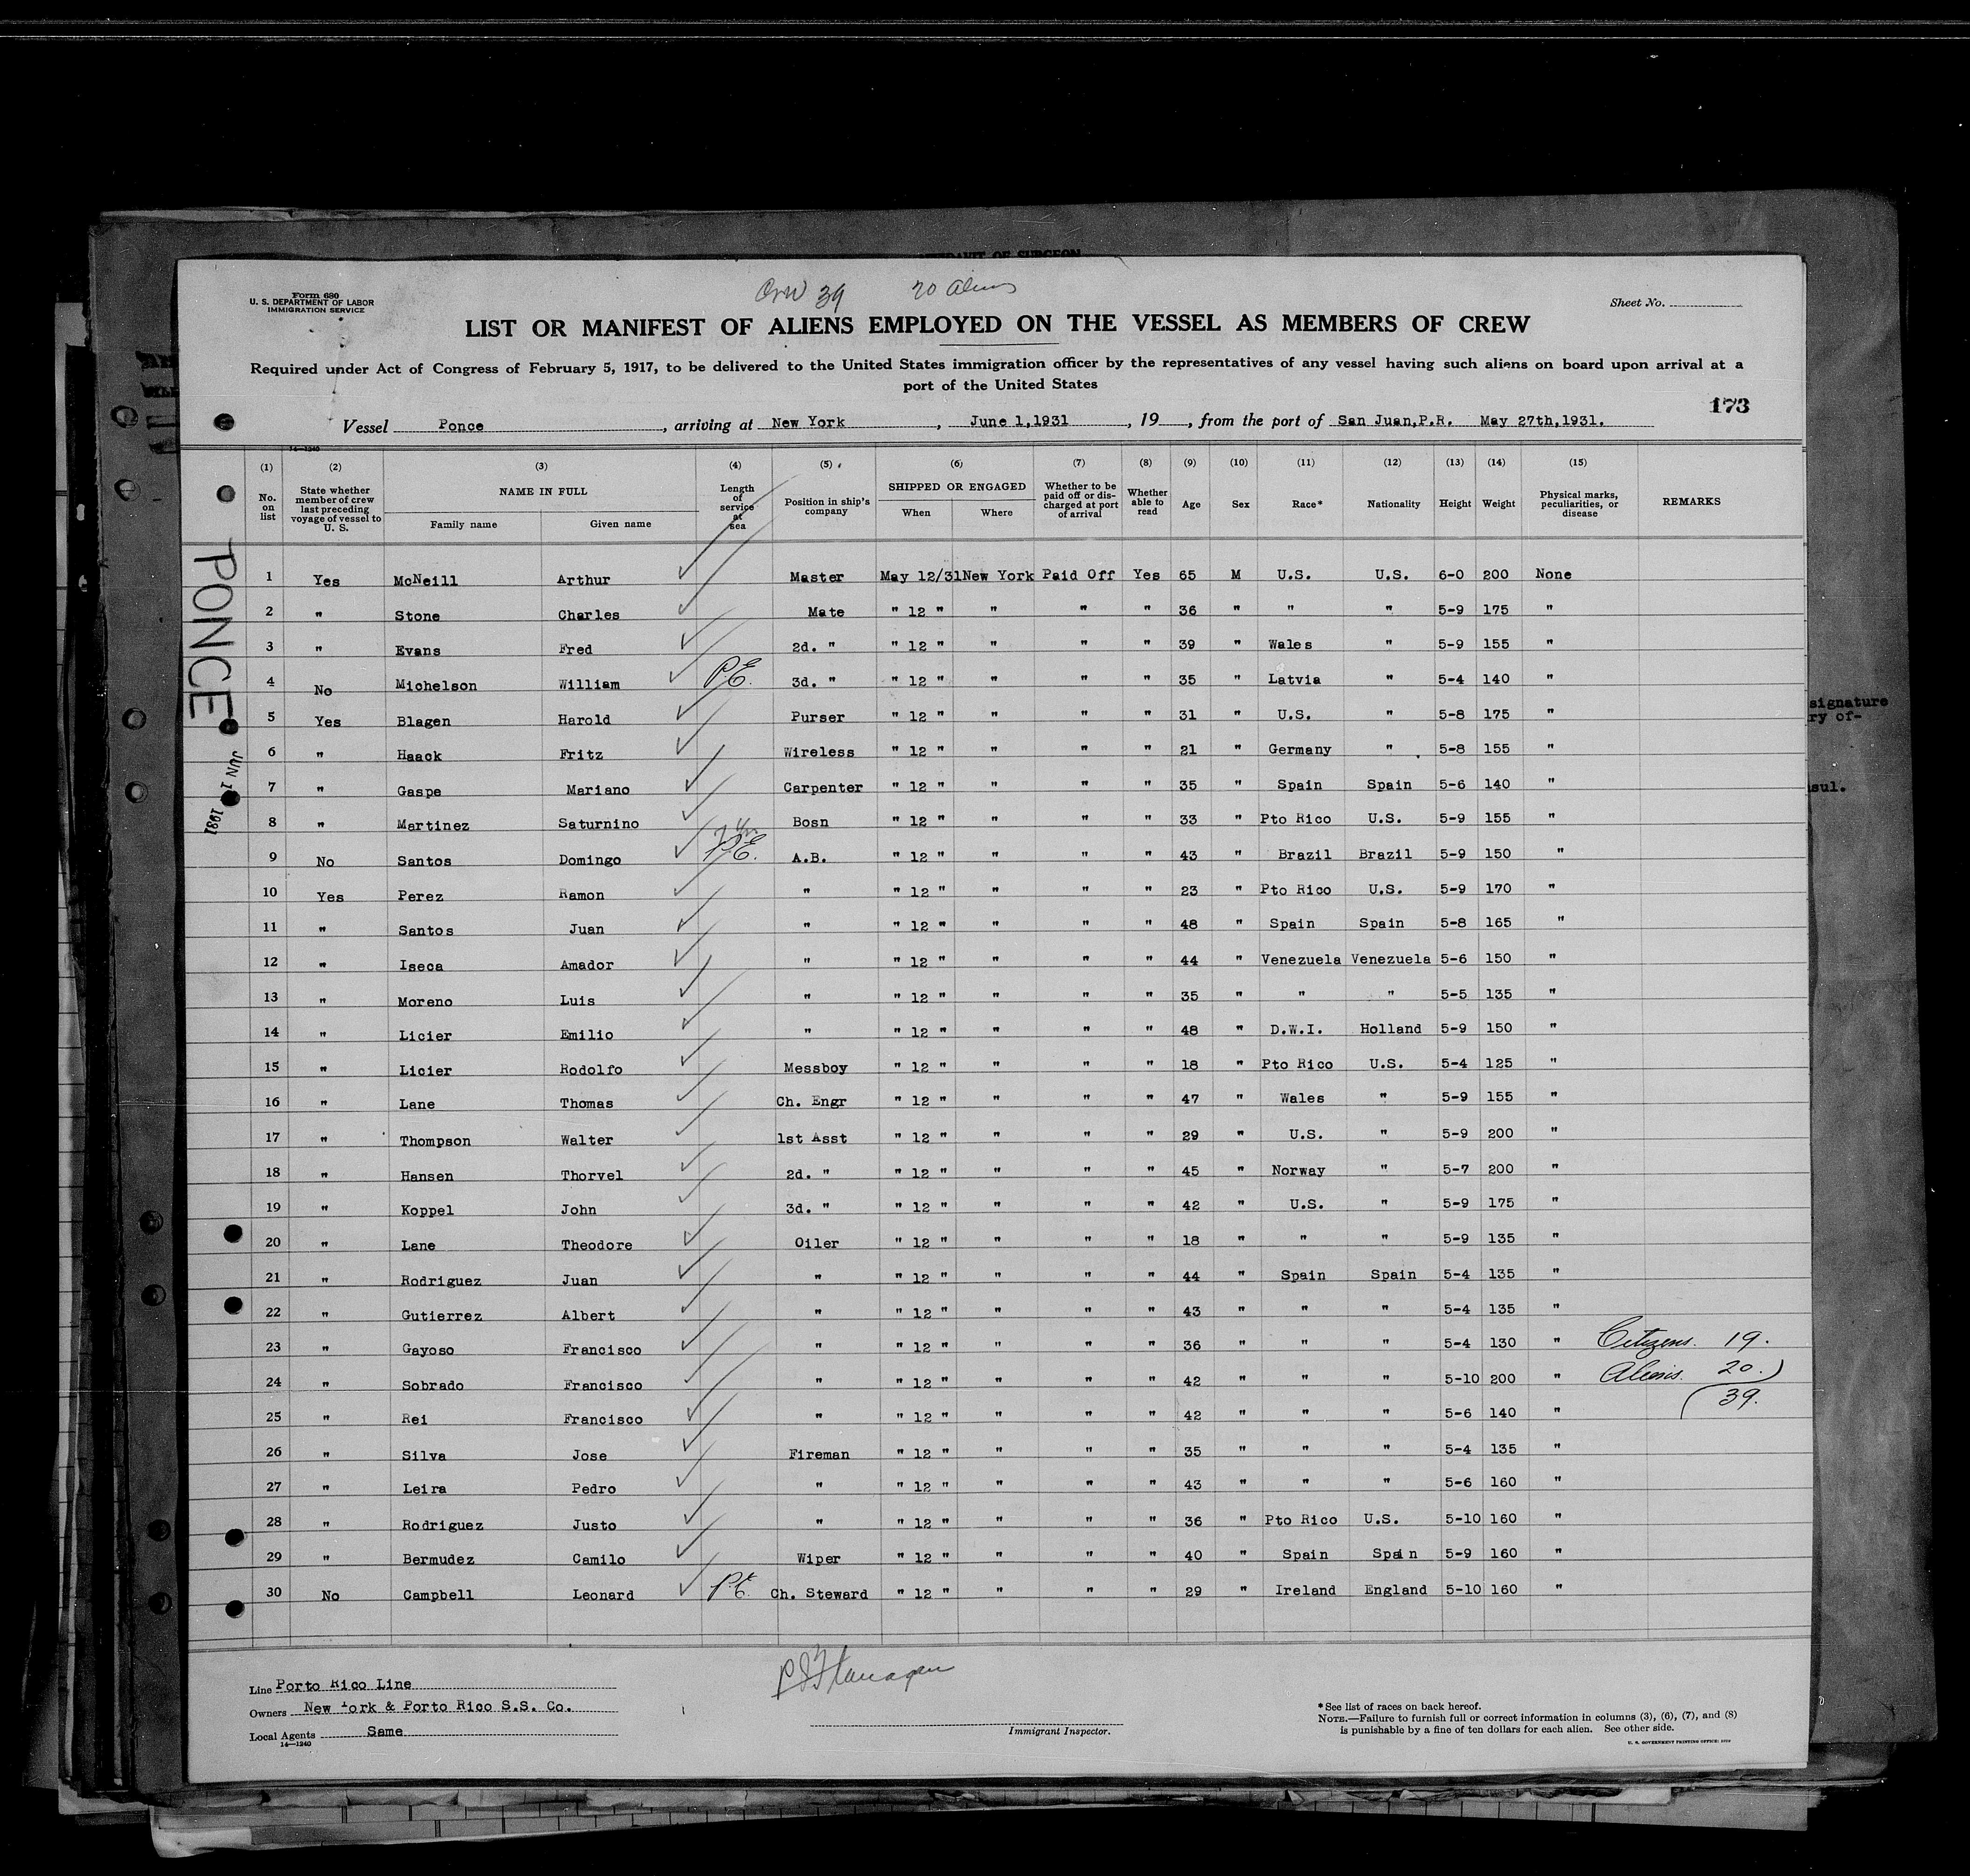 AFFIDAVIT OF SURGEON
Form 680
U. S. DEPARTMENT OF LABOR
IMMIGRATION SERVICE
Crew 39 20 Aliens
Sheet No.
LIST OR MANIFEST OF ALIENS EMPLOYED ON THE VESSEL AS MEMBERS OF CREW
Required under Act of Congress of February 5, 1917, to be delivered to the United States immigration officer by the representatives of any vessel having such aliens on board upon arrival at a
port of the United States
173
Vessel Ponce, arriving at New York, June 1,1931, 19, from the port of San Juan,P.R. May 27th,1931.
14—1240
(1) (2) (3) (4) (5) (6) (7) (8) (9) (10) (11) (12) (13) (14) (15)
No. on list | State whether member of crew last preceding voyage of vessel to U. S. | NAME IN FULL Family name Given name | Length of service at sea | Position in ship's company | SHIPPED OR ENGAGED When Where | Whether to be paid off or discharged at port of arrival | Whether able to read | Age | Sex | Race* | Nationality | Height | Weight | Physical marks, peculiarities, or disease | REMARKS
1 Yes McNeill Arthur Master May 12/31 New York Paid Off Yes 65 M U.S. U.S. 6-0 200 None
2 " Stone Charles Mate " 12 " " " " 36 " " " 5-9 175 "
3 " Evans Fred 2d. " " 12 " " " " 39 " Wales " 5-9 155 "
4 No Michelson William P.E. 3d. " " 12 " " " " 35 " Latvia " 5-4 140 "
5 Yes Blagen Harold Purser " 12 " " " " 31 " U.S. " 5-8 175 "
6 " Haack Fritz Wireless " 12 " " " " 21 " Germany " 5-8 155 "
7 " Gaspe Mariano Carpenter " 12 " " " " 35 " Spain Spain 5-6 140 "
8 " Martinez Saturnino Bosn " 12 " " " " 33 " Pto Rico U.S. 5-9 155 "
9 No Santos Domingo P.E. A.B. " 12 " " " " 43 " Brazil Brazil 5-9 150 "
10 Yes Perez Ramon " " 12 " " " " 23 " Pto Rico U.S. 5-9 170 "
11 " Santos Juan " " 12 " " " " 48 " Spain Spain 5-8 165 "
12 " Iseca Amador " " 12 " " " " 44 " Venezuela Venezuela 5-6 150 "
13 " Moreno Luis " " 12 " " " " 35 " " " 5-5 135 "
14 " Licier Emilio " " 12 " " " " 48 " D.W.I. Holland 5-9 150 "
15 " Licier Rodolfo Messboy " 12 " " " " 18 " Pto Rico U.S. 5-4 125 "
16 " Lane Thomas Ch. Engr " 12 " " " " 47 " Wales " 5-9 155 "
17 " Thompson Walter 1st Asst " 12 " " " " 29 " U.S. " 5-9 200 "
18 " Hansen Thorvel 2d. " " 12 " " " " 45 " Norway " 5-7 200 "
19 " Koppel John 3d. " " 12 " " " " 42 " U.S. " 5-9 175 "
20 " Lane Theodore Oiler " 12 " " " " 18 " " " 5-9 135 "
21 " Rodriguez Juan " " 12 " " " " 44 " Spain Spain 5-4 135 "
22 " Gutierrez Albert " " 12 " " " " 43 " " " 5-4 135 "
23 " Gayoso Francisco " " 12 " " " " 36 " " " 5-4 130 " Citizens. 19.
24 " Sobrado Francisco " " 12 " " " " 42 " " " 5-10 200 " Aliens. 20.
25 " Rei Francisco " " 12 " " " " 42 " " " 5-6 140 " 39.
26 " Silva Jose Fireman " 12 " " " " 35 " " " 5-4 135 "
27 " Leira Pedro " " 12 " " " " 43 " " " 5-6 160 "
28 " Rodriguez Justo " " 12 " " " " 36 " Pto Rico U.S. 5-10 160 "
29 " Bermudez Camilo Wiper " 12 " " " " 40 " Spain Spain 5-9 160 "
30 No Campbell Leonard P.E. Ch. Steward " 12 " " " " 29 " Ireland England 5-10 160 "
PONCE
JUN 1 1931
signature
ry of-
sul.
Line Porto Rico Line
Owners New York & Porto Rico S.S. Co.
Local Agents Same
14—1240
Immigrant Inspector.
*See list of races on back hereof.
NOTE.—Failure to furnish full or correct information in columns (3), (6), (7), and (8)
is punishable by a fine of ten dollars for each alien. See other side.